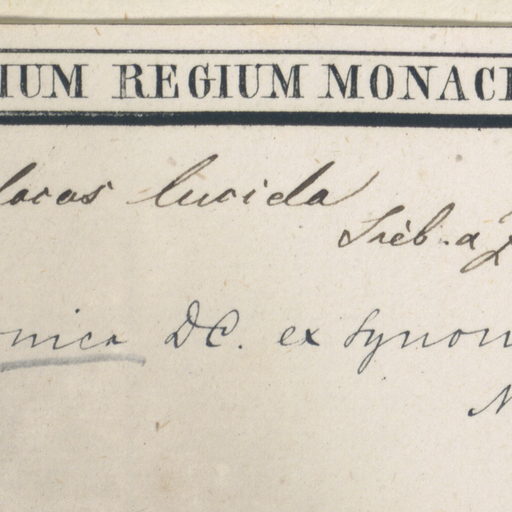 IUM REGIUM MONAC
locos lucida
Sieb. a Z
onica DC. ex Synon
N